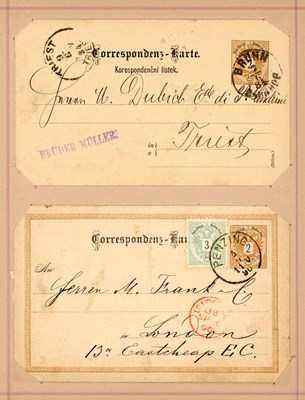 TRIEST
Correspondenz-Karte.
Korespondenční lístek.
BRÜNN
BAHNHOF
Herrn M. Dubich
Triest
BRÜDER MÜLLER
Correspondenz-Kar
3
2
PENZING
An
Herren M. Frank & C.
in London
13a Eastcheap E.C.